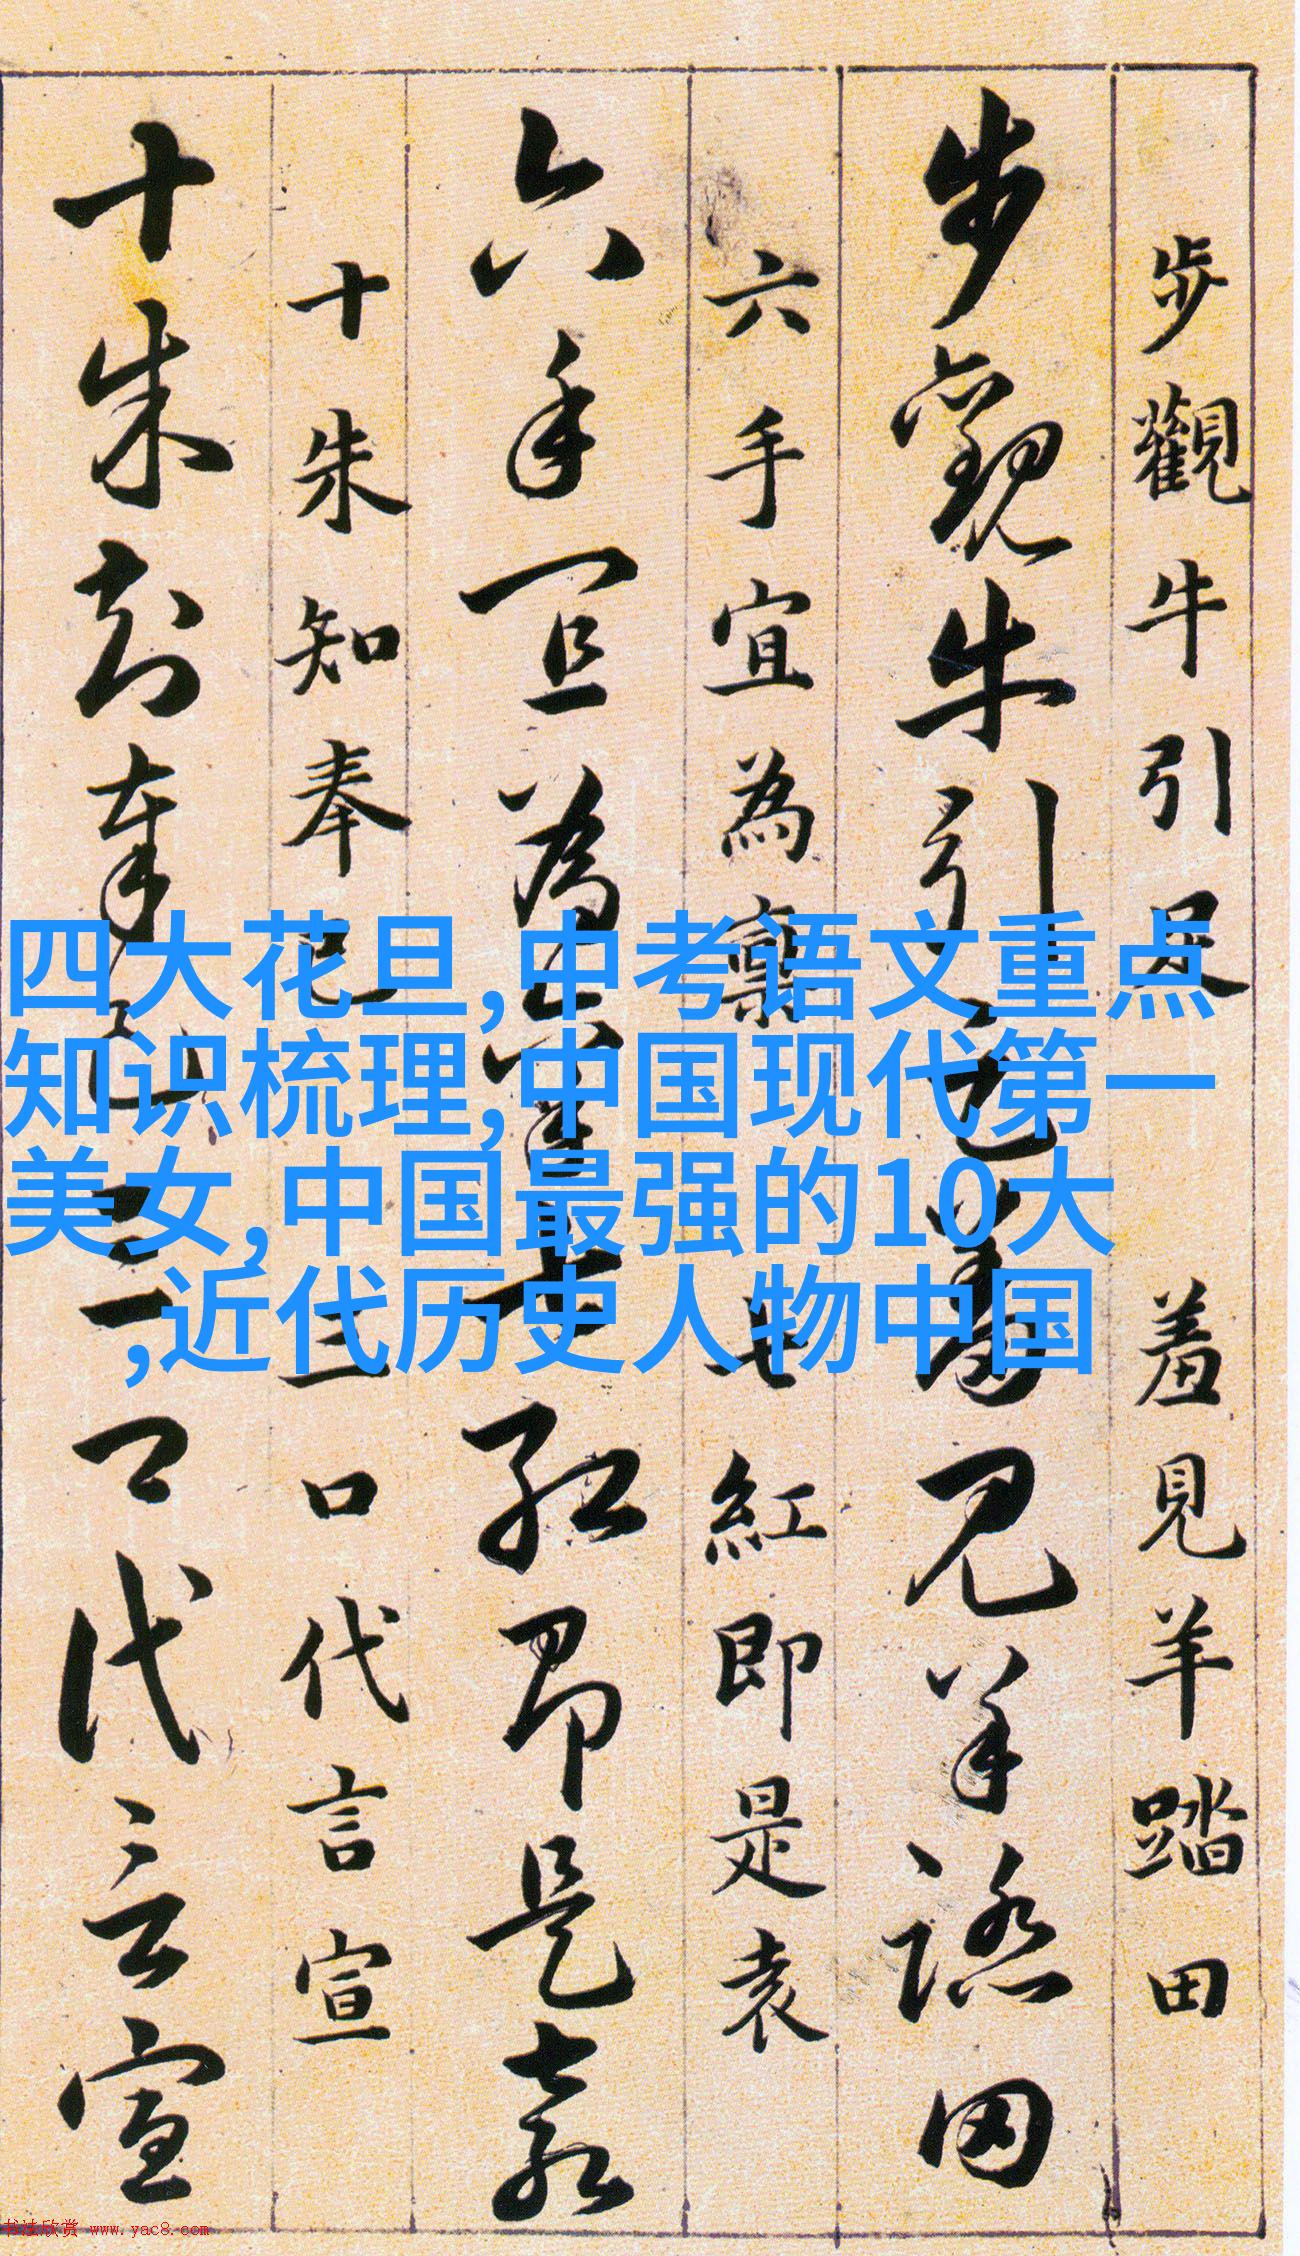 步觀牛引足 羞見羊踏田
步觀牛引足羞見羊踏田
六手宜為稟 七紅即是袁
六手宜為稟七紅即是袁
十朱知奉已 三口代言宣
十朱知奉已三口代言宣
四大花旦,中考语文重点
知识梳理,中国现代第一
美女,中国最强的10大
,近代历史人物中国
书法欣赏 www.yac8.com